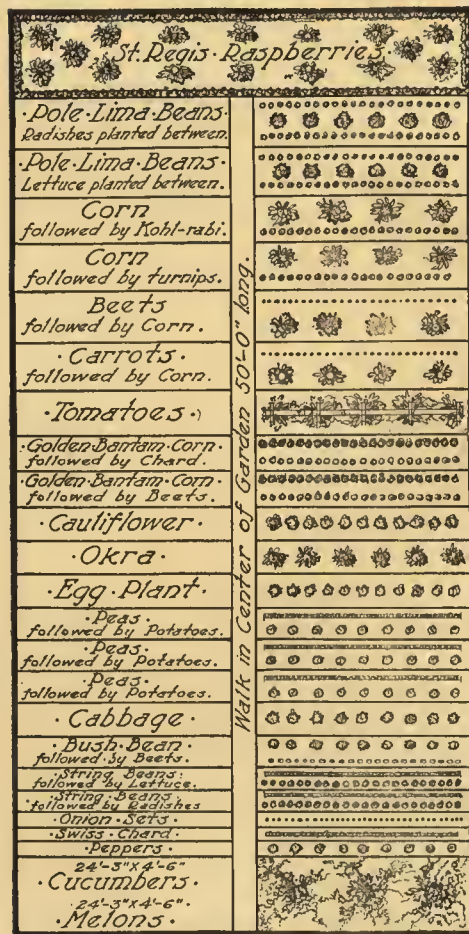 St. Regis · Raspberries ·
· Pole · Lima · Beans ·
Radishes planted between.
· Pole · Lima · Beans ·
Lettuce planted between.
Corn
followed by Kohl-rabi.
Corn
followed by turnips.
Beets
followed by Corn.
· Carrots ·
followed by Corn.
· Tomatoes ·
· Golden · Bantam · Corn ·
followed by Chard.
· Golden · Bantam · Corn ·
followed by Beets.
· Cauliflower ·
· Okra ·
· Egg · Plant ·
· Peas ·
followed by Potatoes.
· Peas ·
followed by Potatoes.
· Peas ·
followed by Potatoes.
· Cabbage ·
· Bush · Bean ·
followed by Beets.
· String Beans ·
followed by Lettuce.
· String Beans ·
followed by Radishes
· Onion · Sets ·
· Swiss · Chard ·
· Peppers ·
24'-3"X4'-6"
· Cucumbers ·
24'-3"X4'-6"
· Melons ·
Walk in Center of Garden 50'-0" long.